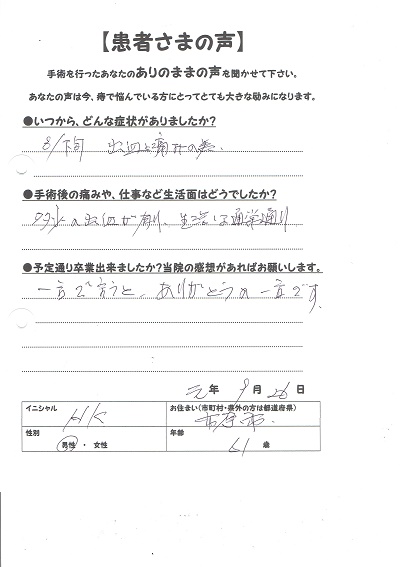 【患者さまの声】
手術を行ったあなたのありのままの声を聞かせて下さい。
あなたの声は今、痔で悩んでいる方にとってとても大きな励みになります。
●いつから、どんな症状がありましたか?
8/下旬 出血と痛みの
●手術後の痛みや、仕事など生活面はどうでしたか?
の出血が有り、生活は通常通り
●予定通り卒業出来ましたか?当院の感想があればお願いします。
一言で言うと、ありがとうの一言です。
元年 9月 26日
イニシャル
H K
お住まい(市町村・県外の方は都道府県)
市原市
性別
男性 ・ 女性
年齢
61 歳